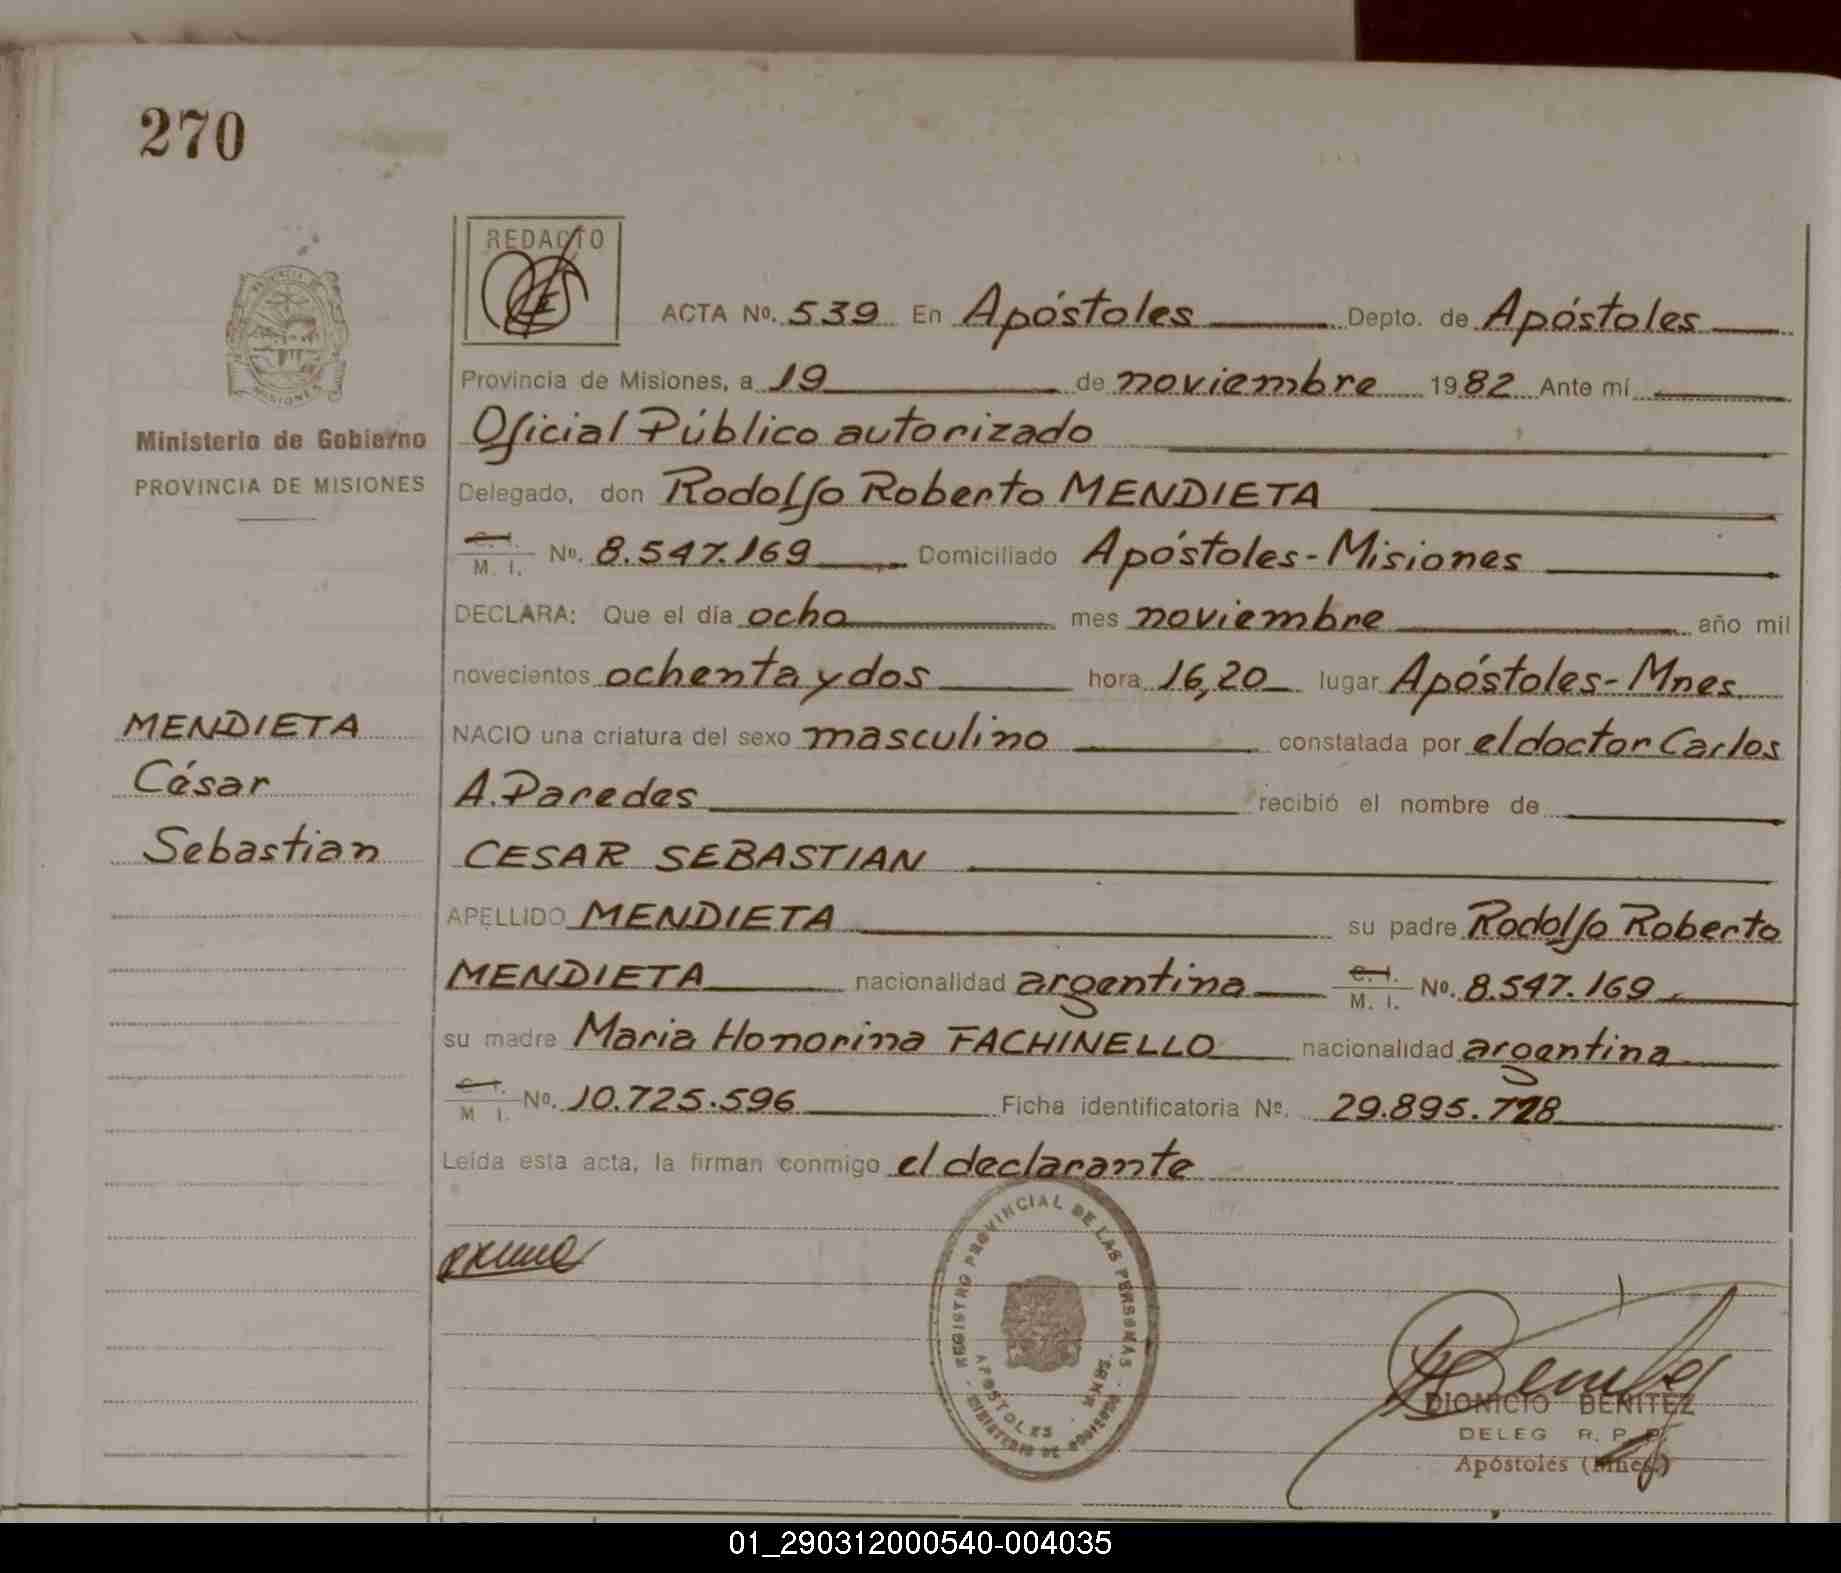 270
REDACTO
ACTA Nº. 539 En Apóstoles Depto. de Apóstoles
Provincia de Misiones, a 19 de noviembre 1982 Ante mí
Ministerio de Gobierno
Oficial Público autorizado
PROVINCIA DE MISIONES
Delegado, don Rodolfo Roberto MENDIETA
C. I.
M. I. Nº. 8.547.169 Domiciliado Apóstoles-Misiones
DECLARA: Que el día ocho mes noviembre año mil
novecientos ochenta y dos hora 16,20 lugar Apóstoles-Mnes.
MENDIETA
César
Sebastian
NACIO una criatura del sexo masculino constatada por el doctor Carlos
A. Paredes recibió el nombre de
CESAR SEBASTIAN
APELLIDO MENDIETA su padre Rodolfo Roberto
MENDIETA nacionalidad argentina C. I. M. I. Nº. 8.547.169
su madre Maria Honorina FACHINELLO nacionalidad argentina
C. I. M. I. Nº. 10.725.596 Ficha identificatoria Nº. 29.895.728
Leída esta acta, la firman conmigo el declarante
REGISTRO PROVINCIAL DE LAS PERSONAS
APOSTOLES
MINISTERIO DE GOBIERNO
DIONICIO BENITEZ
DELEG R. P. P.
Apóstoles (Mnes.)
01_290312000540-004035